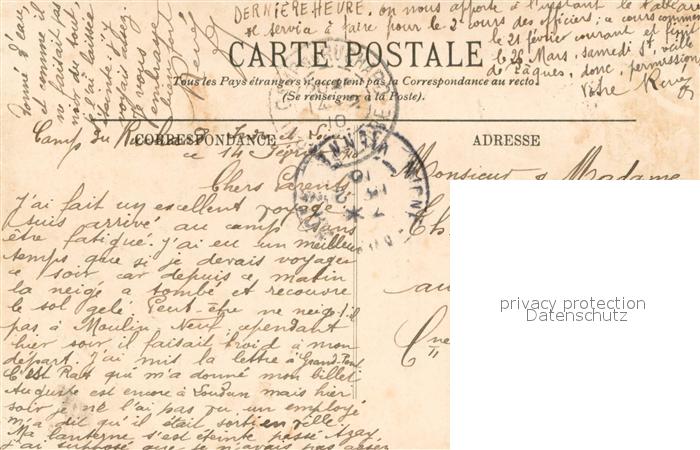 DERNIÈRE HEURE. on nous apporte à l'instant le tableau
et servira à faire pour le 2e cours des officiers; a cours commence
le 21 février courant et finit
le 26 Mars, samedi St, veille
de Pâques, donc permission
Votre René
tonnie d'eau,
et comme il
ne faisait pas
noir du tout,
je l'ai laissée
éteinte: j'y
voyais assez.
Je vous
embrasse
bien fort
René
CARTE POSTALE
Tous les Pays étrangers n'acceptent pas la Correspondance au recto.
(Se renseigner à la Poste).
CORRESPONDANCE
ADRESSE
Camp du Ruchard
ce 14 Février
Chers Parents,
J'ai fait un excellent voyage
suis arrivé au camp sans
être fatigué. J'ai eu un meilleur
temps que si je devais voyager
ce soir car depuis ce matin
la neige a tombé et recouvre
le sol gelé. Peut-être ne neige-t-il
pas à Moulin Neuf; cependant
hier soir il faisait froid à mon
départ. J'ai mis la lettre à Grand-Pont
C'est Rat qui m'a donné mon billet
Auguste est encore à Loudun mais hier
soir je ne l'ai pas vu un employé
m'a dit qu'il était sorti en ville.
Ma lanterne s'est éteinte passé Azay,
j'ai supposé que je n'avais pas assez
Monsieur & Madame
Ch
au
Cne
"
VIENNE
privacy protection
Datenschutz